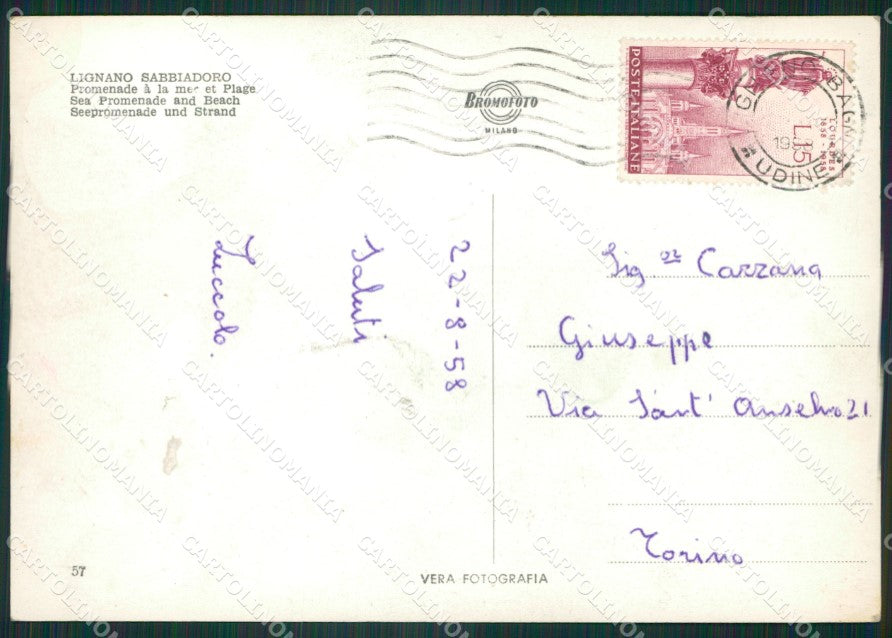 LIGNANO SABBIADORO
Promenade à la mer et Plage
Sea Promenade and Beach
Seepromenade und Strand
BROMOFOTO
MILANO
POSTE ITALIANE
LOURDES
1858-1958
L.15
BAGNI
UDINE
22-8-58
Saluti
Luccolo.
Sig or Cazzana
Giuseppe
Via Sant' Anselmo 21
Torino
57
VERA FOTOGRAFIA
CARTOLINOMANIA